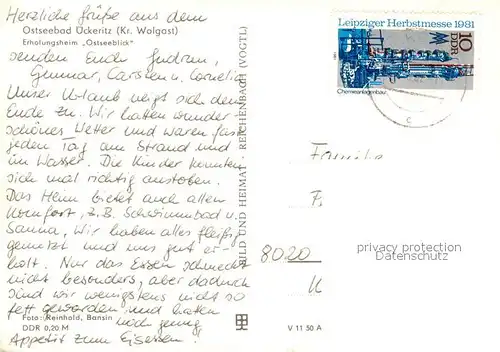 Herzliche Grüße aus dem
Ostseebad Ückeritz (Kr. Wolgast)
Erholungsheim „Ostseeblick"
senden Euch Gudrun,
Gunnar, Carsten u. Cornelia
Unser Urlaub neigt sich dem
Ende zu. Wir hatten wunder-
schönes Wetter und waren fast
jeden Tag am Strand und
im Wasser. Die Kinder konnten
sich mal richtig austoben.
Das Heim bietet auch allen
Komfort, z.B. Schwimmbad u.
Sauna, Wir haben alles fleißig
genutzt und uns gut er-
holt. Nur das Essen schmeckt
nicht besonders, aber dadurch
sind wir wenigstens nicht so
fett geworden und hatten
Foto: Reinhold, Bansin
noch genug
DDR 0,20 M
Appetit zum Eisessen.
BILD UND HEIMAT REICHENBACH (VOGTL)
V 11 50 A
Leipziger Herbstmesse 1981
10
DDR
Chemieanlagenbau
Familie
8020
privacy protection
Datenschutz